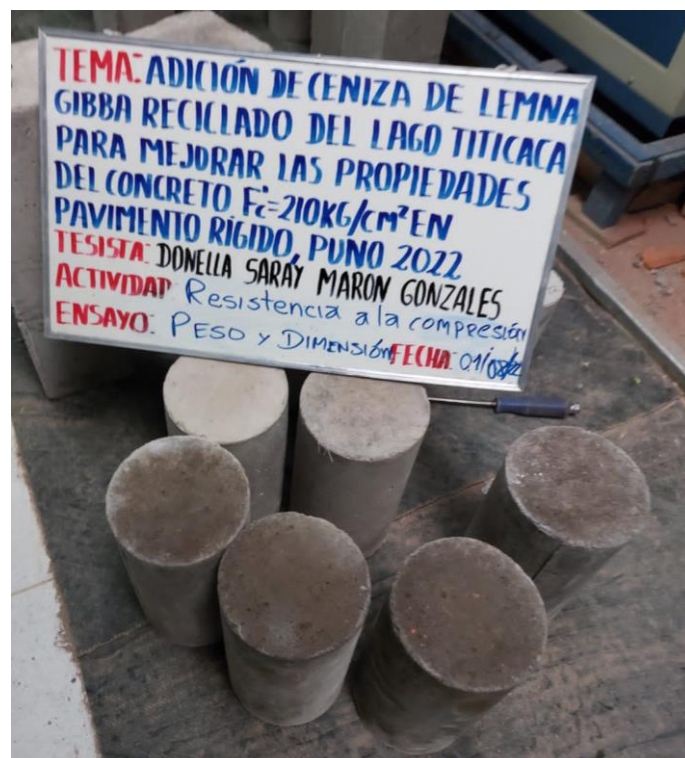 TEMA: ADICIÓN DE CENIZA DE LEMNA
GIBBA RECICLADO DEL LAGO TITICACA
PARA MEJORAR LAS PROPIEDADES
DEL CONCRETO F'c=210KG/cm² EN
PAVIMENTO RÍGIDO, PUNO 2022
TESISTA: DONELLA SARAY MARON GONZALES
ACTIVIDAD: Resistencia a la compresión
ENSAYO: PESO Y DIMENSIÓN FECHA: